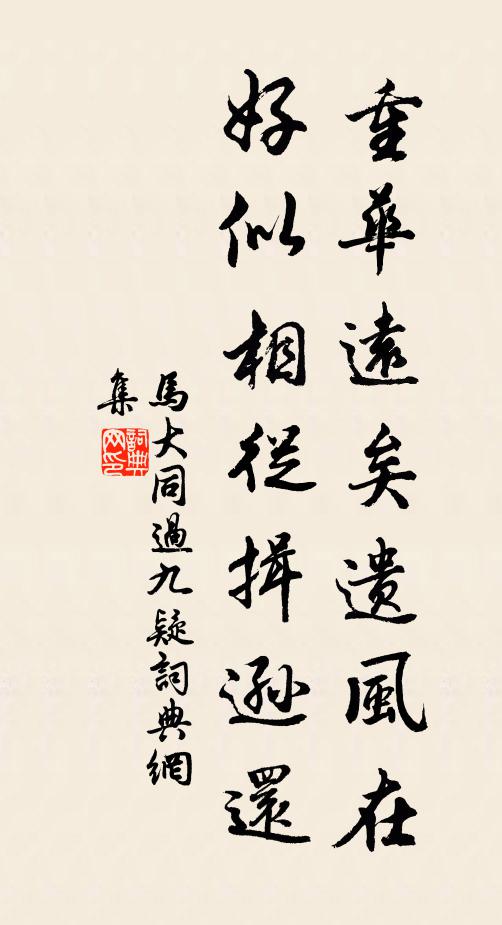 重華遠矣遺風在
好似相從揖遜還
馬大同過九疑詞典網
集
詞典網印